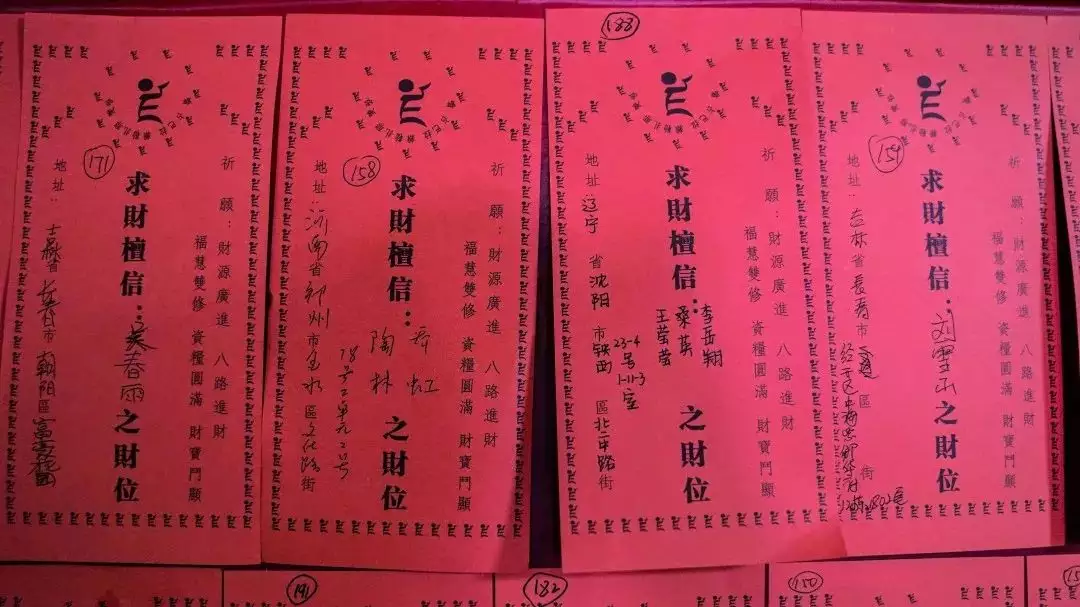 171
祈願：財源廣進 八路進財
福慧雙修 資糧圓滿 財寶門顯
求財檀信：吴春雨之財位
地址：吉林省长春市朝阳區
158
祈願：財源廣進 八路進財
福慧雙修 資糧圓滿 財寶門顯
求財檀信：乔虹 陶林之財位
地址：河南省郑州市金水區文化路街
78号2单元2号
188
祈願：財源廣進 八路進財
福慧雙修 資糧圓滿 財寶門顯
求財檀信：李岳翔 桑英 王莹莹之財位
地址：辽宁省沈阳市铁西區北二中路街
23-4号
1-11-3室
159
祈願：財源廣進 八路進財
福慧雙修 資糧圓滿 財寶門顯
求財檀信：刘雪之財位
地址：吉林省長春市區街
191
182
150